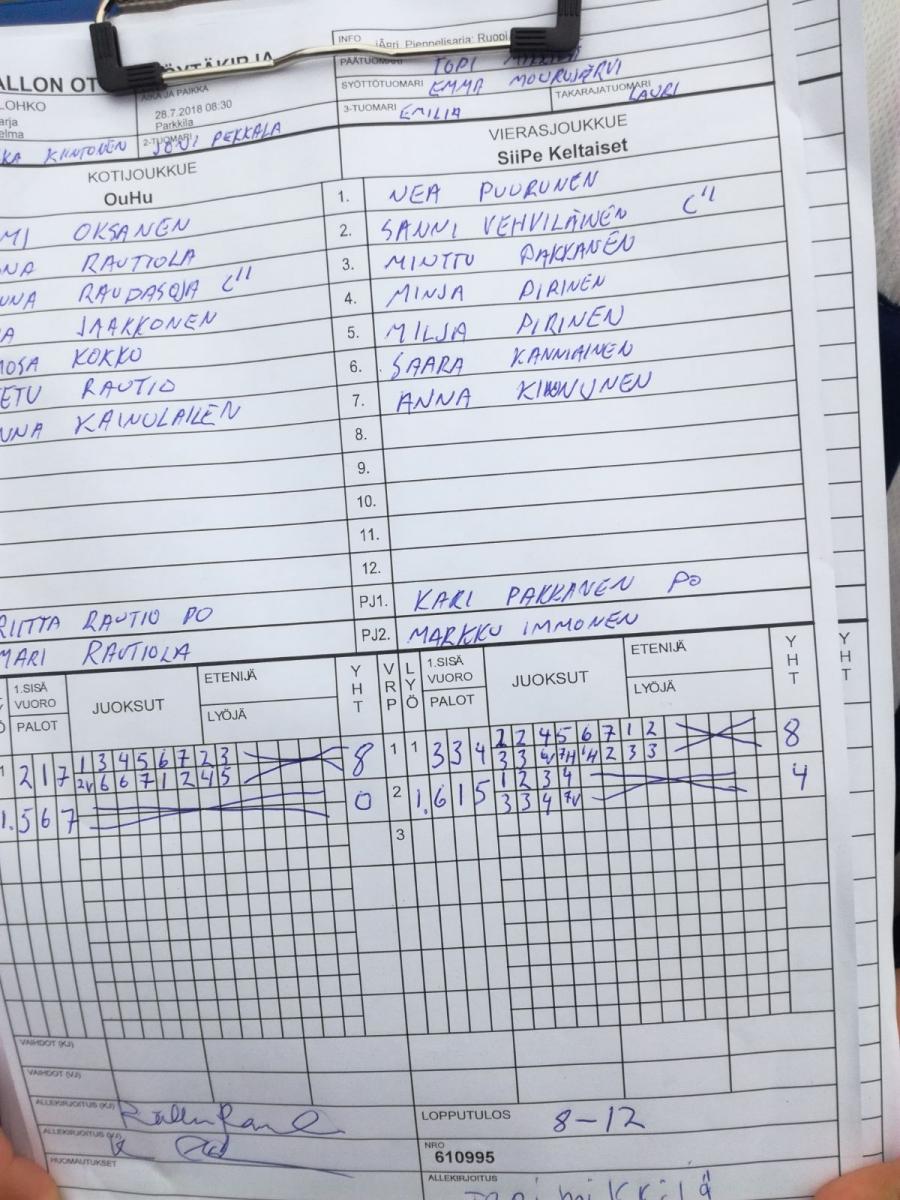 INFO
jÄrj. Piennelisarja: Ruopi
ALLON OT YTÄKIRJA
PÄÄTUOMARI TOPI
LOHKO
AIKA JA PAIKKA
SYÖTTÖTUOMARI EMMA MOURUJÄRVI
arja
28.7.2018 08:30
3-TUOMARI EMILIA
TAKARAJATUOMARI LAURI
elma
Parkkila
KA KIINTONEN
2-TUOMARI JONI PEKKALA
KOTIJOUKKUE
VIERASJOUKKUE
OuHu
SiiPe Keltaiset
MI OKSANEN
1. NEA PUURUNEN
NA RAUTIOLA
2. SANNI VEHVILÄINEN C"
UNA RAUDASOJA C"
3. MINTTU PAKKANEN
A JAAKKONEN
4. MINJA PIRINEN
MOSA KOKKO
5. MILJA PIRINEN
ETU RAUTIO
6. SAARA KANNIAINEN
UNA KAINULAINEN
7. ANNA
8.
9.
10.
11.
12.
RIITTA RAUTIO PO
PJ1. KARI PAKKANEN PO
MARI RAUTIOLA
PJ2. MARKKU IMMONEN
1.SISÄ VUORO PALOT JUOKSUT ETENIJÄ LYÖJÄ YHT VRP LYÖ 1.SISÄ VUORO PALOT JUOKSUT ETENIJÄ LYÖJÄ YHT YHT
1 2 1 7 1 3 4 5 6 7 2 3 8
2V 6 6 7 1 2 4 5
1 1 3 3 4 2 2 4 5 6 7 1 2 8
3 3 4V 7H 1H 2 3 3
1. 5 6 7 0
2 1. 6 1 5 1 2 3 4 4
3 3 4 7V
3
VAIHDOT (KJ)
VAIHDOT (VJ)
ALLEKIRJOITUS (KJ)
LOPPUTULOS 8-12
ALLEKIRJOITUS (VJ)
NRO
610995
HUOMAUTUKSET
ALLEKIRJOITUS